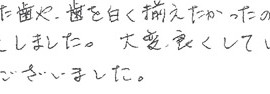 た歯や、歯を白く揃えたかったの
としました。大変良くしてい
ございました。